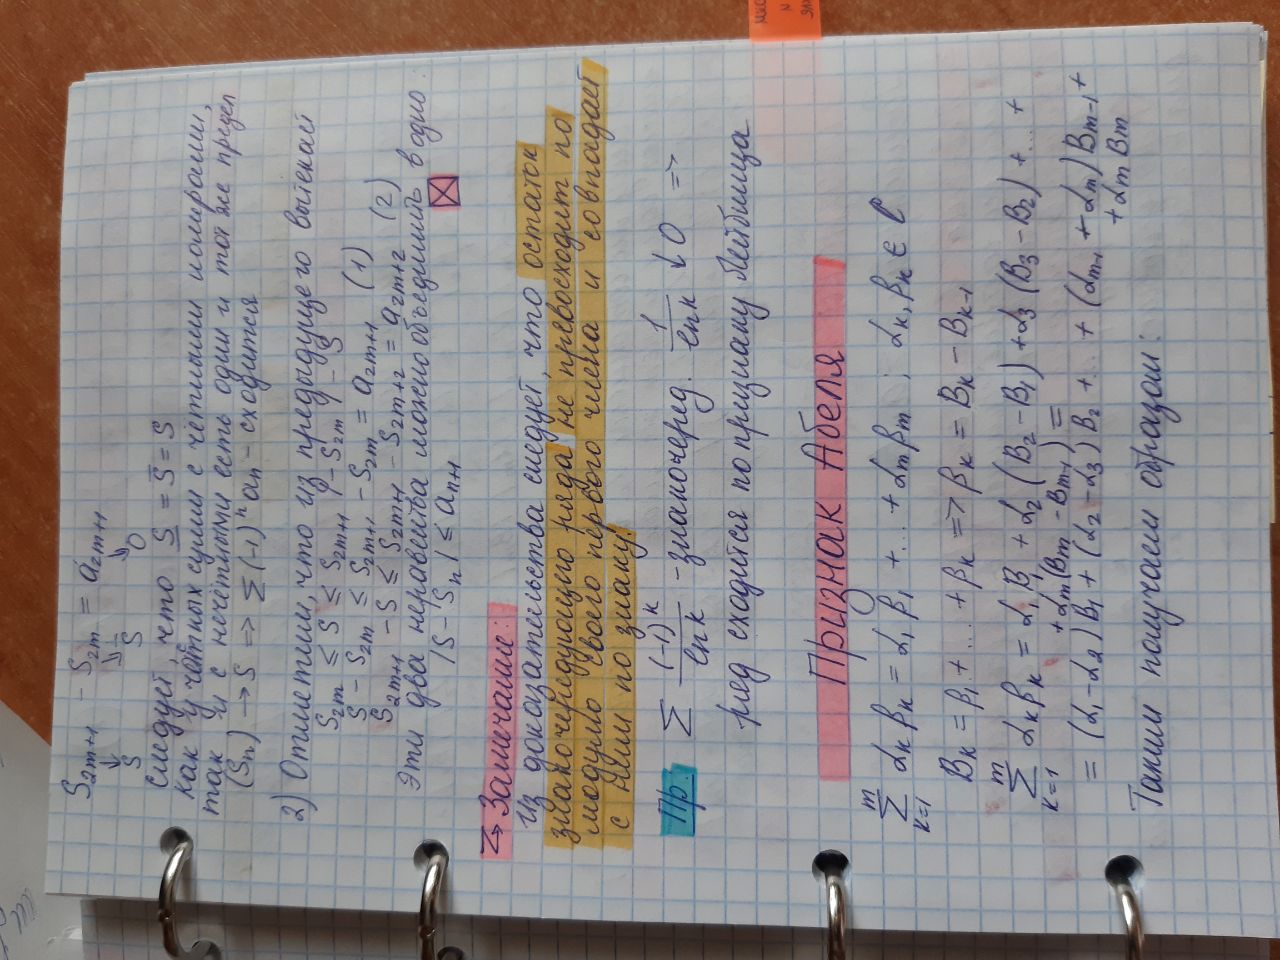 S₂ₘ₊₁ − S₂ₘ = a₂ₘ₊₁
↓ ↘ ↘
S S̅ 0
следует, что S̲ = S̅ = S
Как у чётных сумм с чётными номерами,
так и с нечётными есть один и тот же предел
(Sₙ) → S ⇒ Σ(-1)ⁿaₙ - сходится
2) Отметим, что из предыдущего вытекает
S₂ₘ ≤ S ≤ S₂ₘ₊₁ | − S₂ₘ | − S
S − S₂ₘ ≤ S₂ₘ₊₁ − S₂ₘ = a₂ₘ₊₁ (1)
S₂ₘ₊₁ − S ≤ S₂ₘ₊₁ − S₂ₘ₊₂ = a₂ₘ₊₂ (2)
Эти два неравенства можно объединить в одно:
|S − Sₙ| ≤ aₙ₊₁
Замечание:
Из доказательства следует, что остаток
знакочередующегося ряда не превосходит по
модулю своего первого члена и совпадает
с ним по знаку.
Пр: Σ (-1)ᵏ/ln k - знакочеред. 1/ln k ↓ 0 ⇒
ряд сходится по признаку Лейбница
Признак Абеля
m
Σ αₖβₖ = α₁β₁ + ... + αₘβₘ ; αₖ, βₖ ∈ ℂ
k=1
Bₖ = β₁ + ... + βₖ ⇒ βₖ = Bₖ − Bₖ₋₁
m
Σ αₖβₖ = α₁B₁ + α₂(B₂ − B₁) + α₃(B₃ − B₂) + ... +
k=1
+ αₘ(Bₘ − Bₘ₋₁) =
= (α₁ − α₂)B₁ + (α₂ − α₃)B₂ + ... + (αₘ₋₁ + αₘ)Bₘ₋₁ +
+ αₘBₘ
Таким получаем образом: